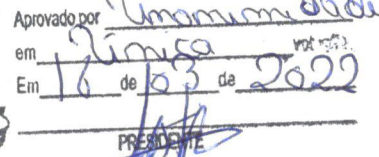 Aprovado por Unanimidade
em Única votação
Em 16 de 03 de 2022
PRESIDENTE